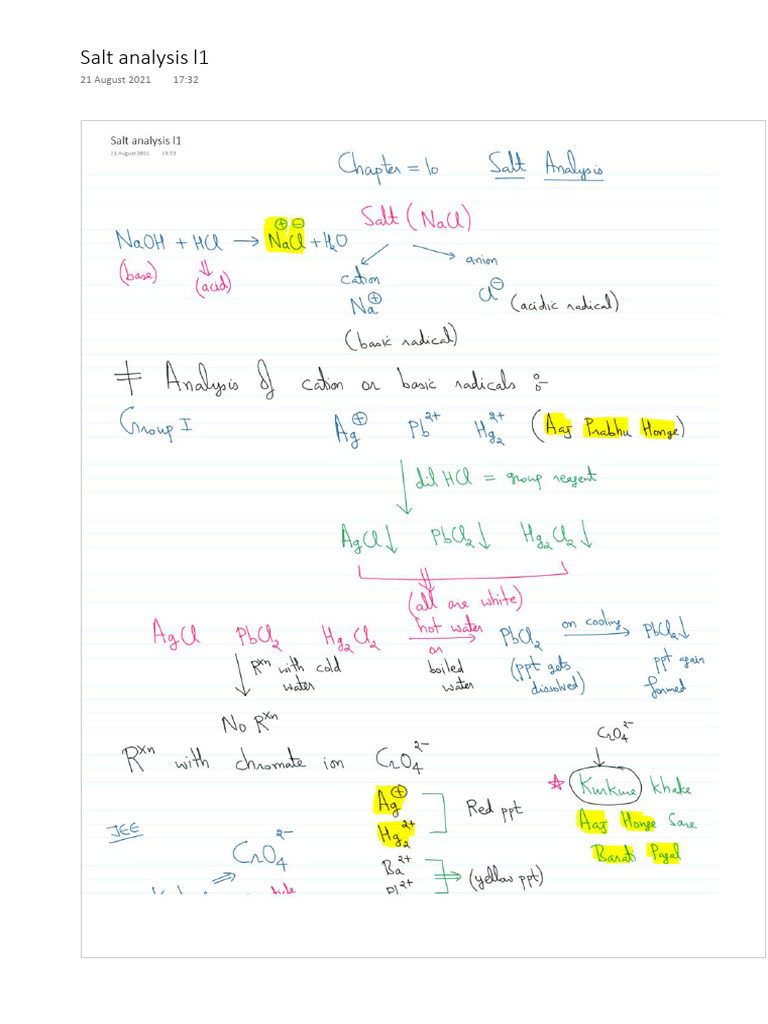 Salt analysis l1
21 August 2021 17:32
Salt analysis l1
21 August 2021 15:53
Chapter = 10 Salt Analysis
Salt (NaCl)
NaOH + HCl → NaCl + H₂O
⊕ ⊖
(base) ⇓ (acid)
cation anion
Na⊕ Cl⊖ (acidic radical)
(basic radical)
≠ Analysis of cation or basic radicals :-
Group I Ag⊕ Pb²⁺ Hg₂²⁺ (Aaj Prabhu Honge)
↓ dil HCl = group reagent
AgCl↓ PbCl₂↓ Hg₂Cl₂↓
(all are white)
AgCl PbCl₂ Hg₂Cl₂ hot water → PbCl₂ on cooling → PbCl₂↓
or boiled water
(ppt gets dissolved)
ppt again formed
↓ Rˣⁿ with cold water
No Rˣⁿ
Rˣⁿ with chromate ion CrO₄²⁻
CrO₄²⁻
↓
☆ Kurkure khake
Aaj Honge Sare
Barati Pagal
Ag⊕
Hg₂²⁺
Red ppt
JEE
CrO₄²⁻
Ba²⁺
Pb²⁺
⇒ (yellow ppt)